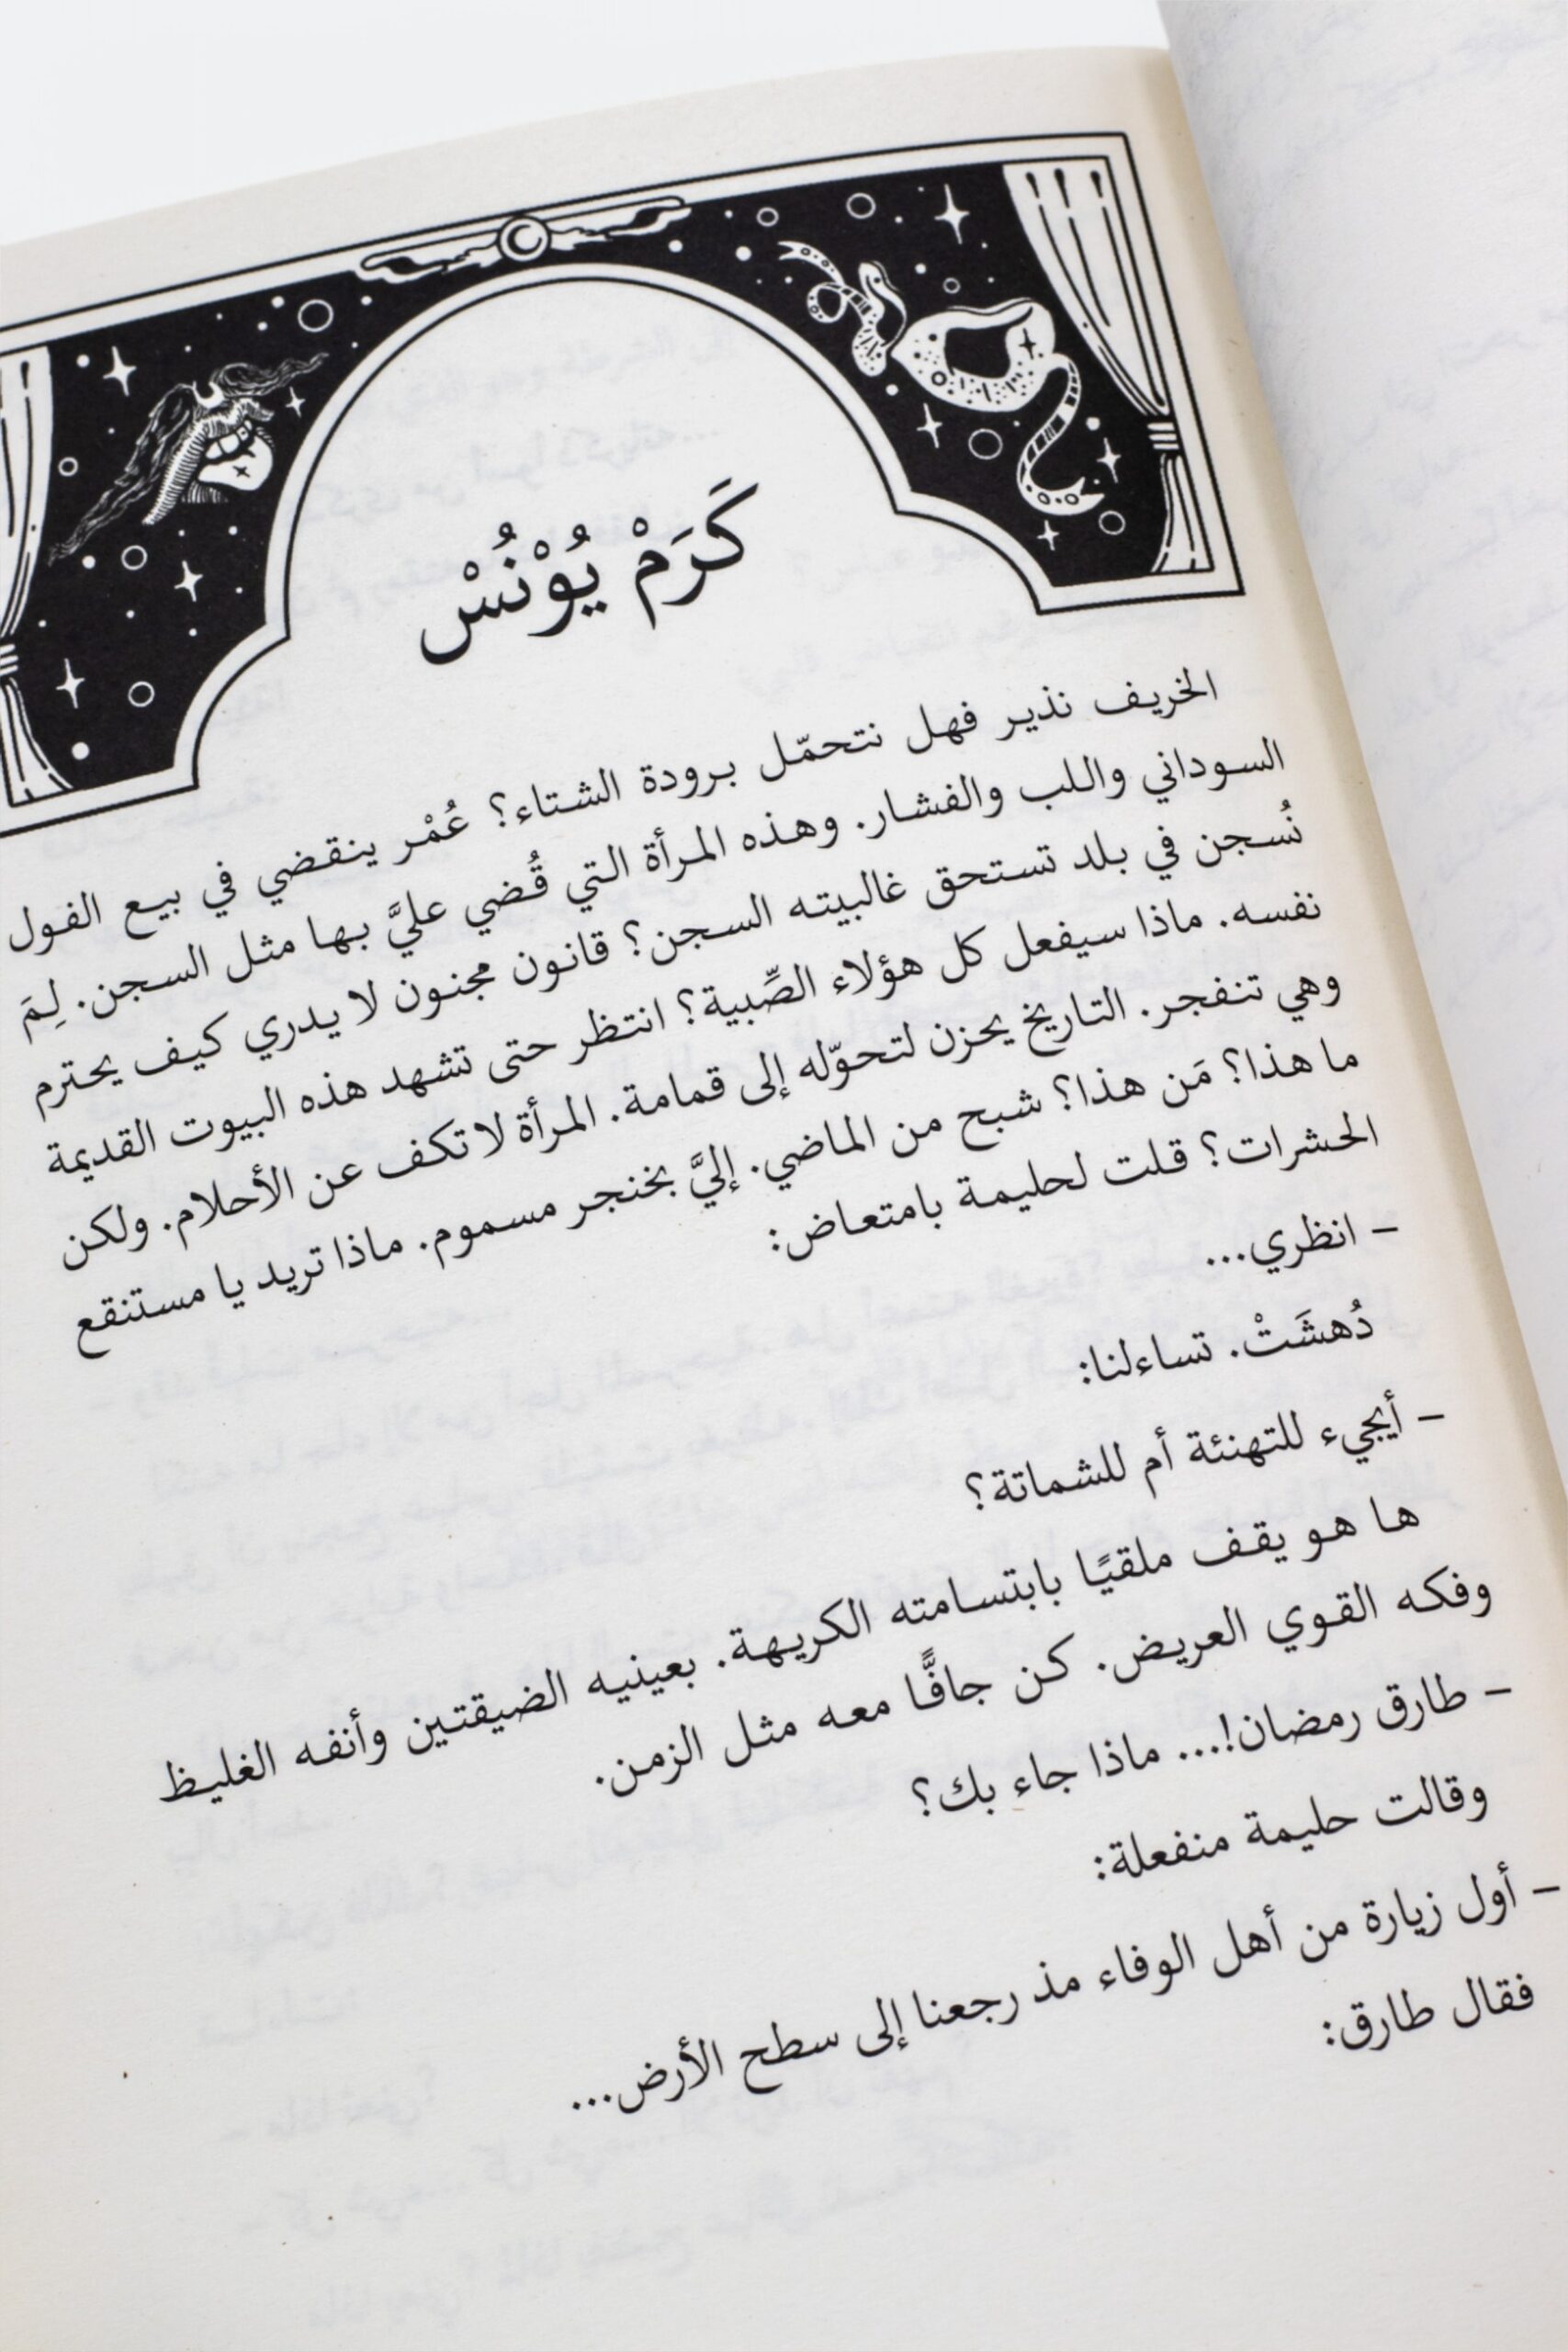 كَرَمْ يُوْنُسْ
الخريف نذير فهل نتحمّل برودة الشتاء؟ عُمْر ينقضي في بيع الفول
السوداني واللب والفشار. وهذه المرأة التي قُضي عليَّ بها مثل السجن. لِمَ
نُسجن في بلد تستحق غالبيته السجن؟ قانون مجنون لا يدري كيف يحترم
نفسه. ماذا سيفعل كل هؤلاء الصِّبية؟ انتظر حتى تشهد هذه البيوت القديمة
وهي تنفجر. التاريخ يحزن لتحوّله إلى قمامة. المرأة لا تكف عن الأحلام. ولكن
ما هذا؟ مَن هذا؟ شبح من الماضي. إليَّ بخنجر مسموم. ماذا تريد يا مستنقع
الحشرات؟ قلت لحليمة بامتعاض:
– انظري...
دُهشَتْ. تساءلنا:
– أيجيء للتهنئة أم للشماتة؟
ها هو يقف ملقيًا بابتسامته الكريهة. بعينيه الضيقتين وأنفه الغليظ
وفكه القوي العريض. كن جافًّا معه مثل الزمن.
– طارق رمضان!... ماذا جاء بك؟
وقالت حليمة منفعلة:
– أول زيارة من أهل الوفاء مذ رجعنا إلى سطح الأرض...
فقال طارق: